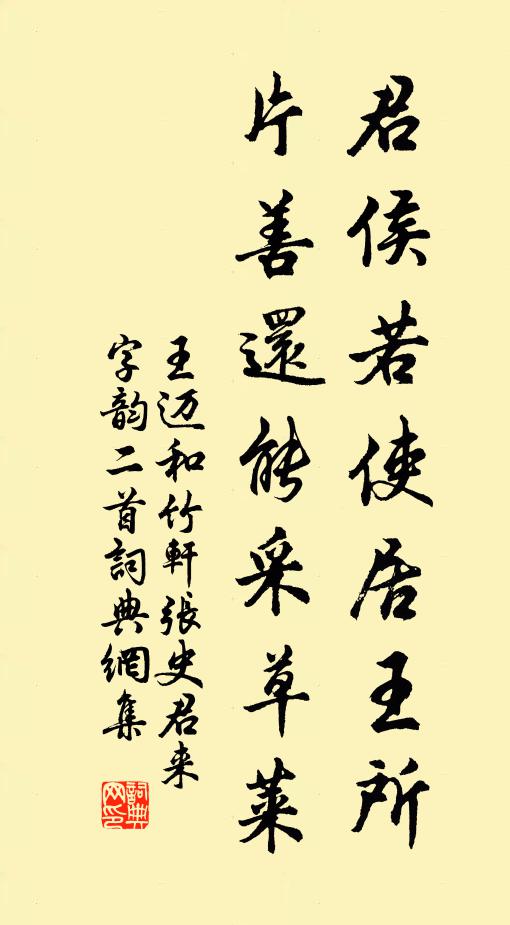 君侯若使居王所
片善還能采草萊
王迈和竹軒張史君来
字韵二首詞典網集
詞典网印